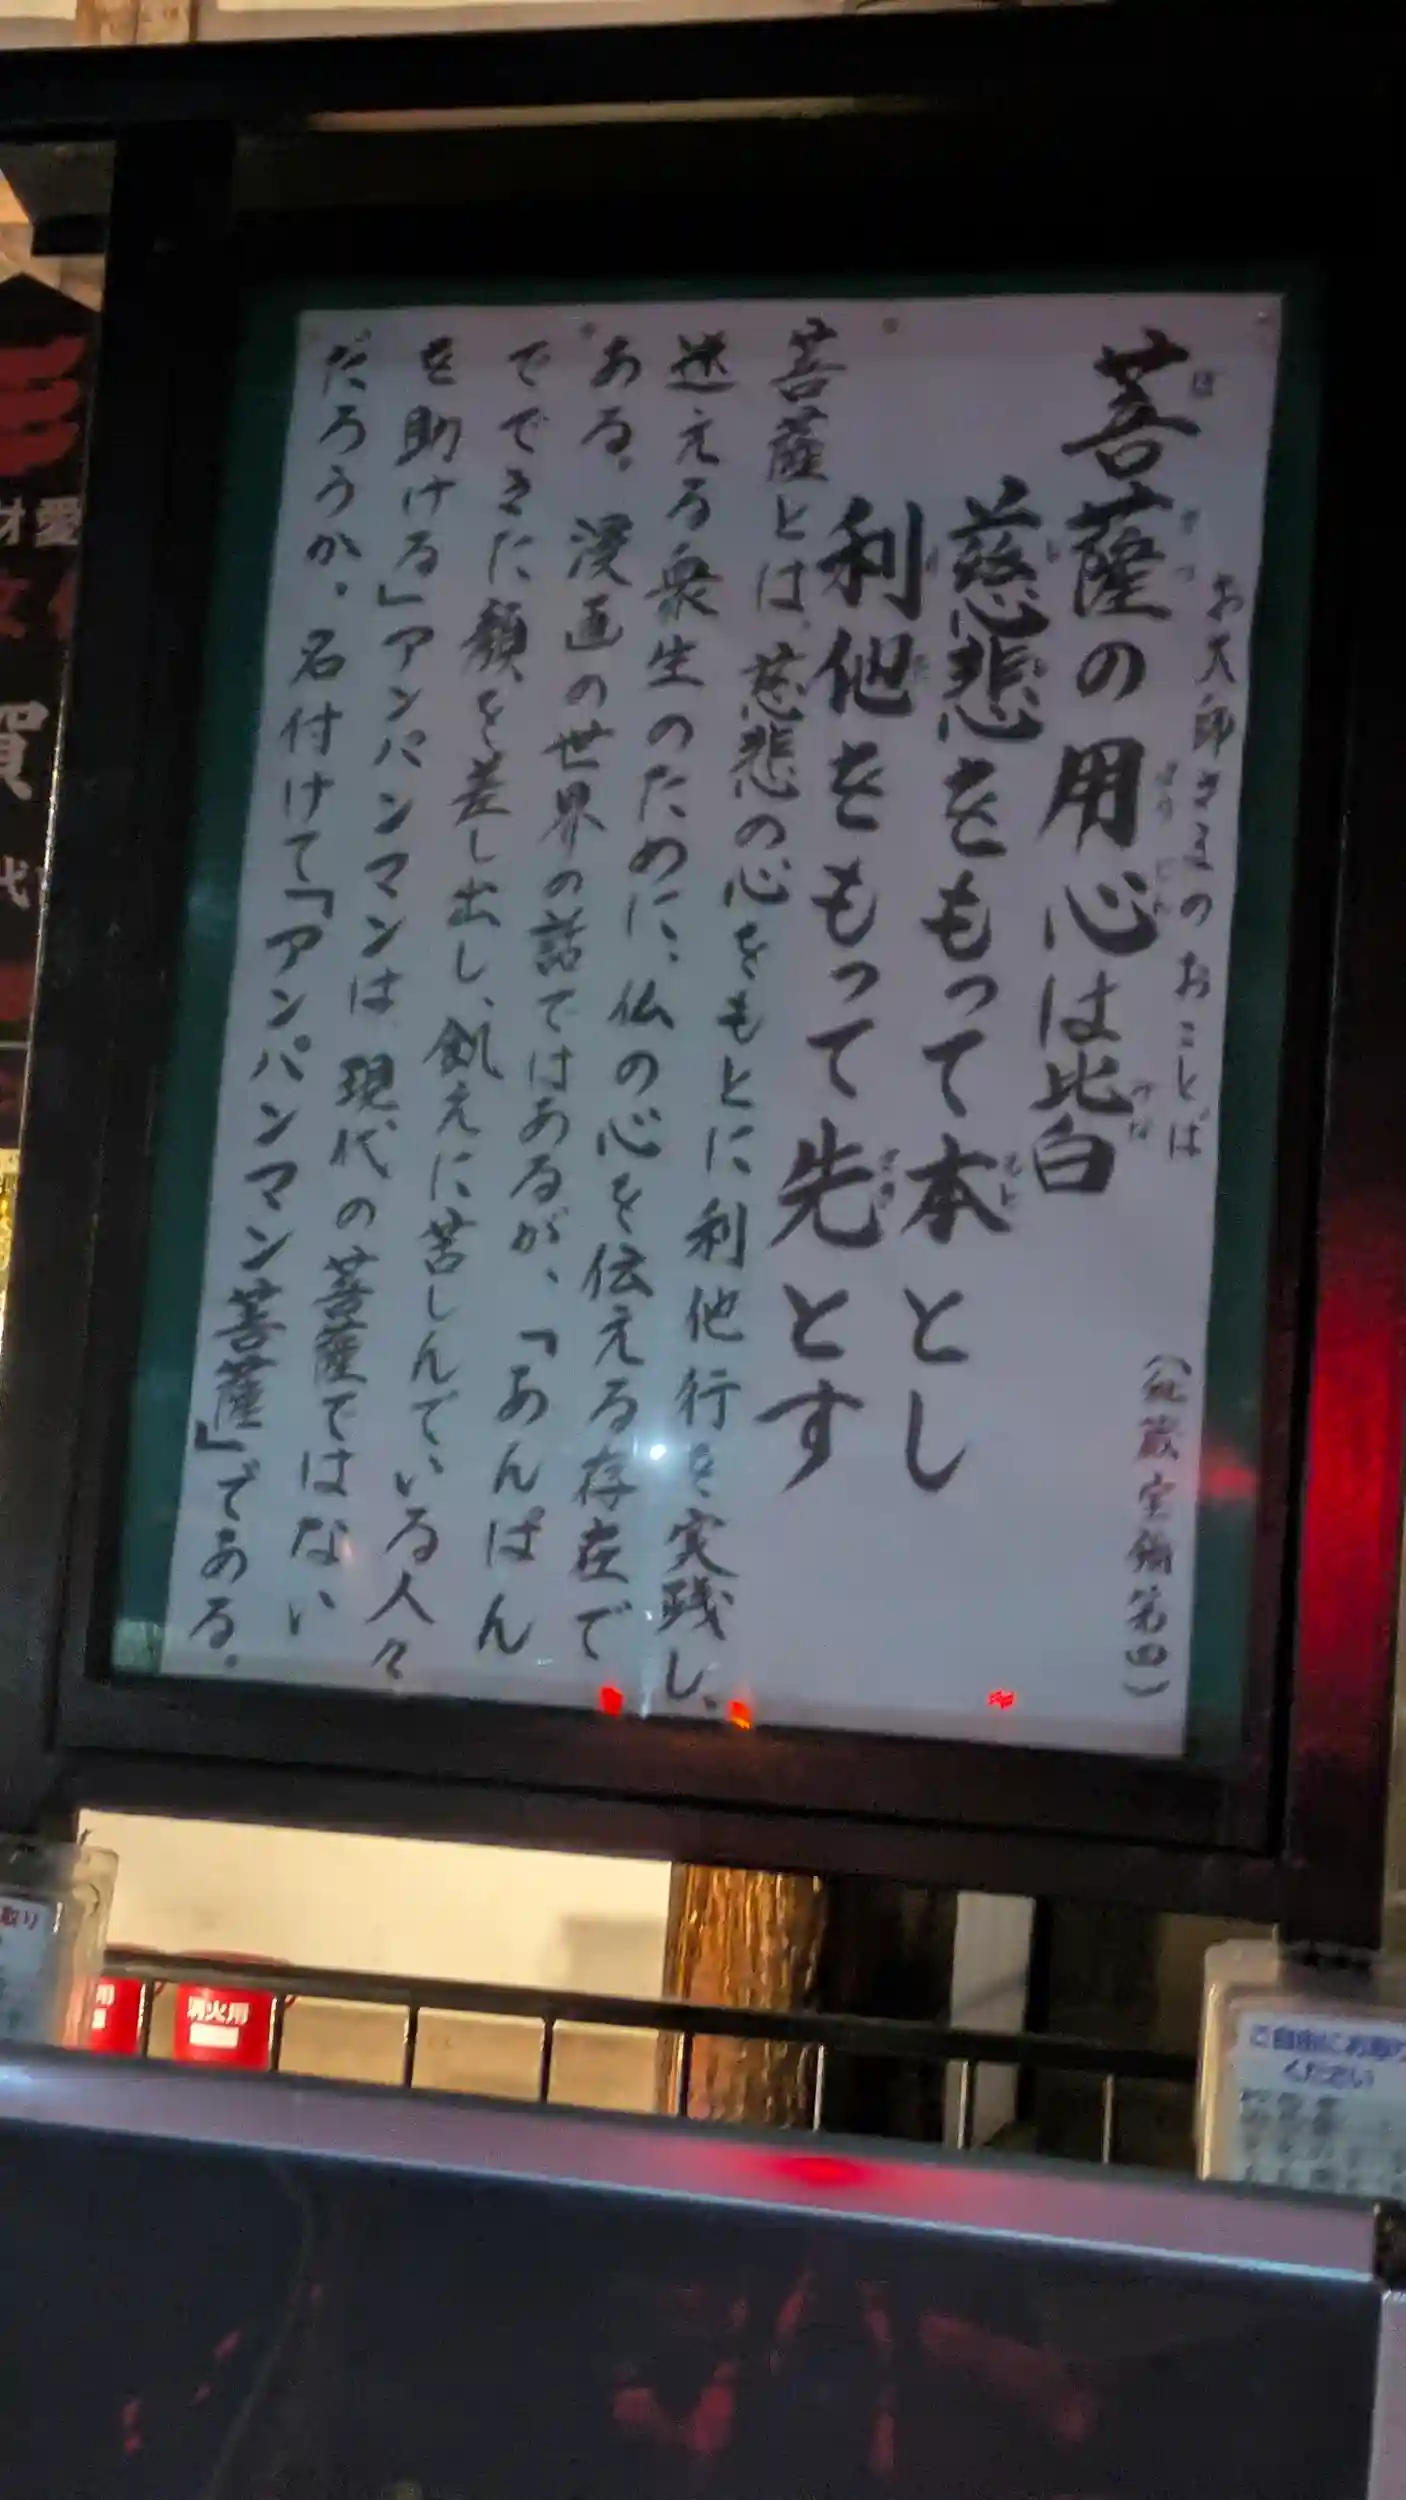 お大師さまのおことば
(秘蔵宝鑰第四)
菩薩の用心は皆
ぼ さつ ようじん みな
慈悲をもって本とし
じ ひ もと
利他をもって先とす
り た さき
菩薩とは、慈悲の心をもとに利他行を実践し、
迷える衆生のために、仏の心を伝える存在で
ある。漫画の世界の話ではあるが、「あんぱん
でできた顔を差し出し、飢えに苦しんでいる人々
を助ける」アンパンマンは、現代の菩薩ではない
だろうか。名付けて「アンパンマン菩薩」である。
財愛
賀
代
取り
用
消火用
ご自由にお取り
ください